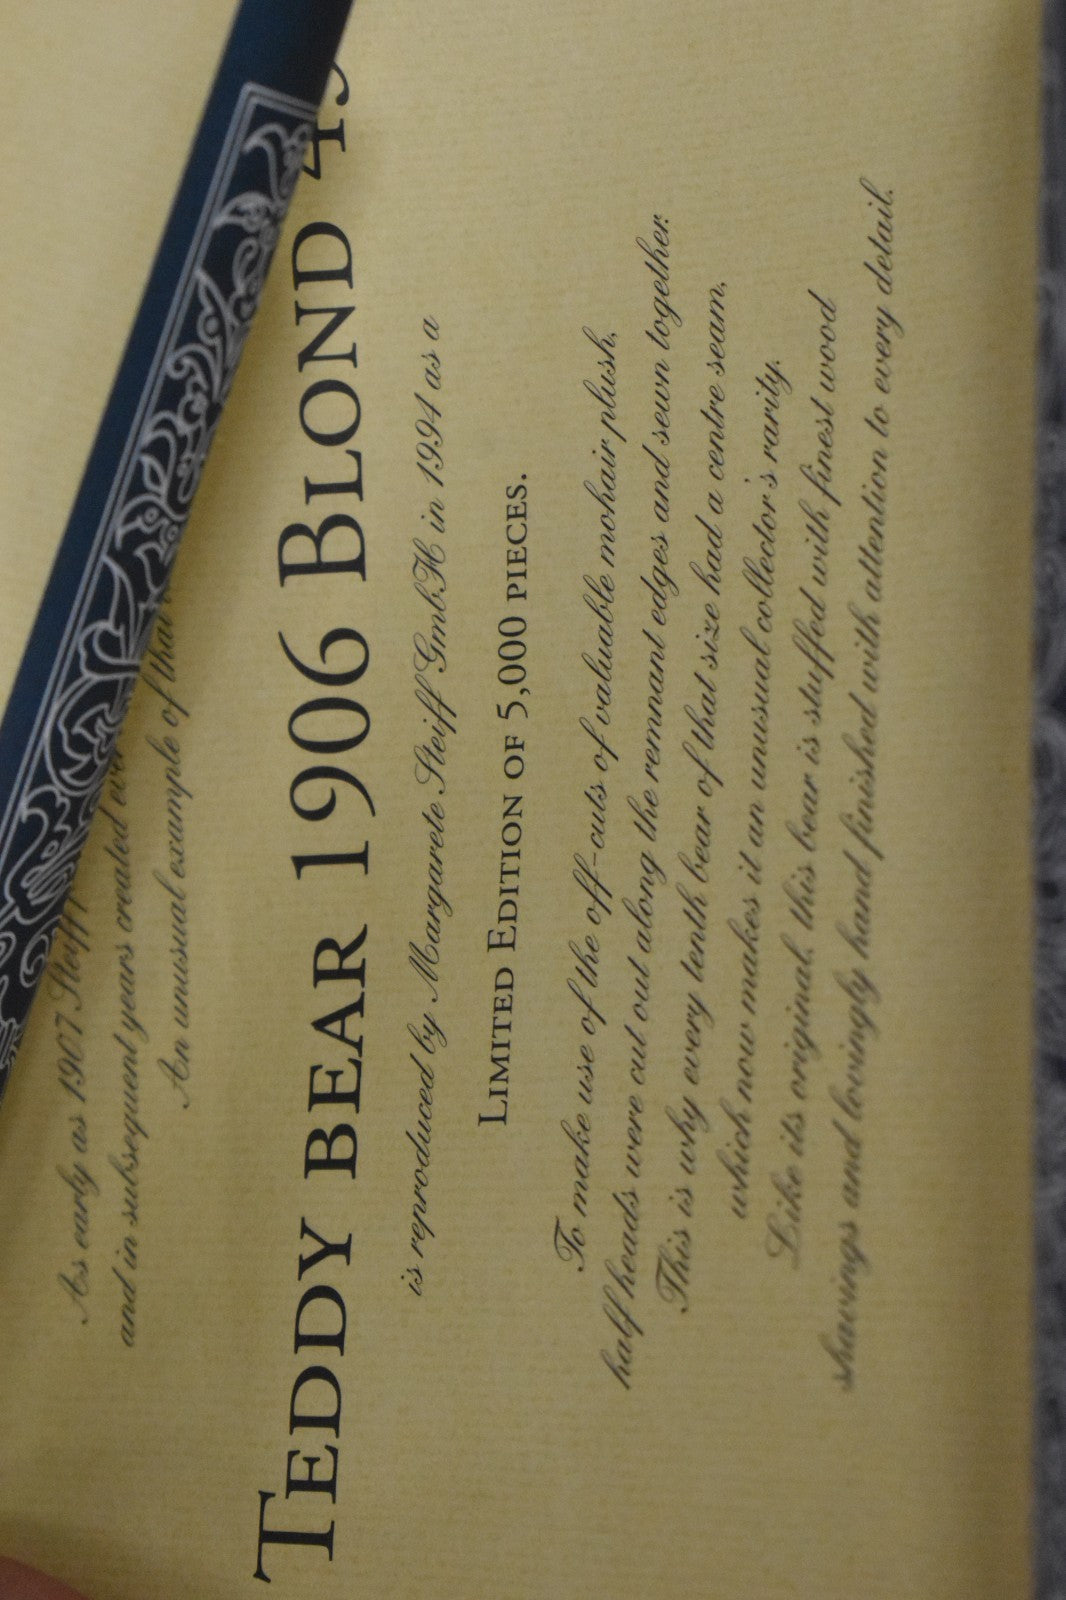 As early as 1907 Steiff
and in subsequent years created
An unusual example of that
TEDDY BEAR 1906 BLOND
is reproduced by Margarete Steiff GmbH in 1994 as a
LIMITED EDITION OF 5,000 PIECES.
To make use of the off-cuts of valuable mohair plush,
half heads were cut out along the remnant edges and sewn together.
This is why every tenth bear of that size had a centre seam,
which now makes it an unusual collector's rarity.
Like its original, this bear is stuffed with finest wood
shavings and lovingly hand finished with attention to every detail.